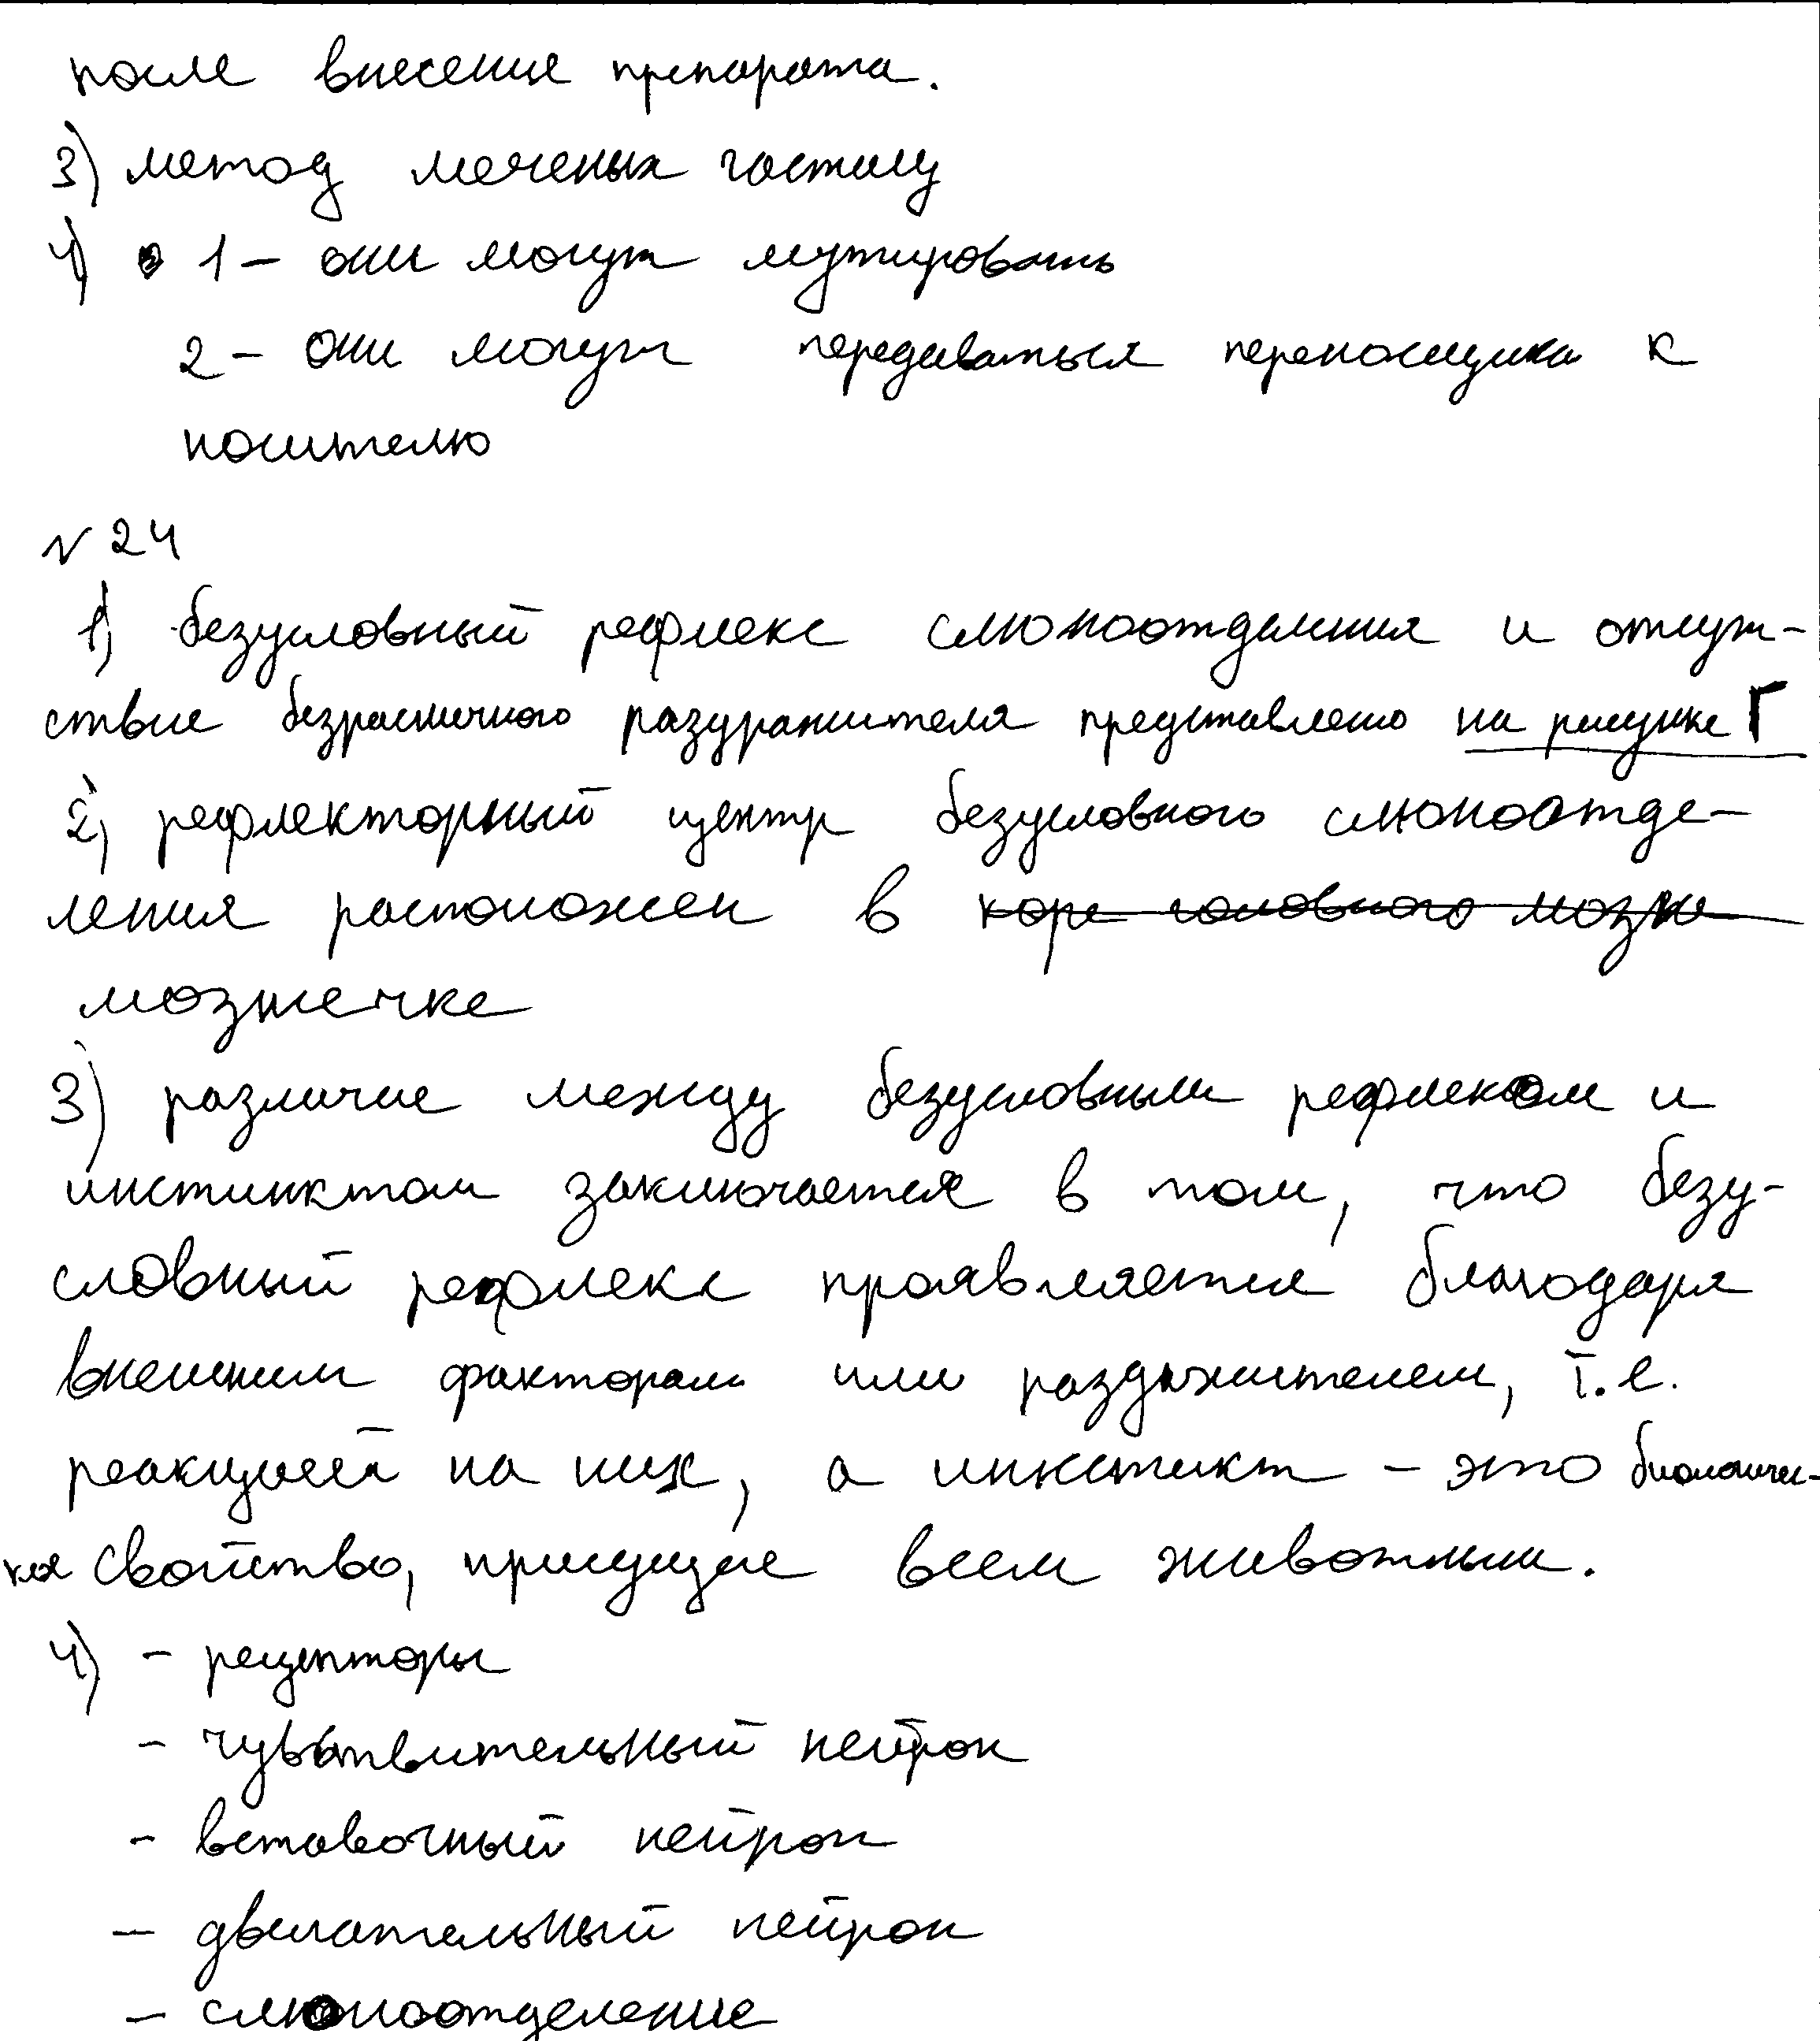 после внесение препарата.
3) метод меченых частиц
4) 1 – они могут мутировать
2 – они могут передаваться переносщика к
носителю
№ 24
1) безусловный рефлекс слюноотделения и отсут-
ствие безразличного раздражителя представлено на рисунке Г
2) рефлекторный центр безусловного слюноотде-
ления расположен в коре головного мозга
мозжечке
3) различие между безусловным рефлексом и
инстинктом заключается в том, что безу-
словный рефлекс проявляется благодаря
внешним факторам или раздражителем, т.е.
реакцией на них, а инстинкт – это биологичес-
кая свойство, присущее всем животным.
4) – рецепторы
– чувствительный нейрон
– вставочный нейрон
– двигательный нейрон
– слюноотделение